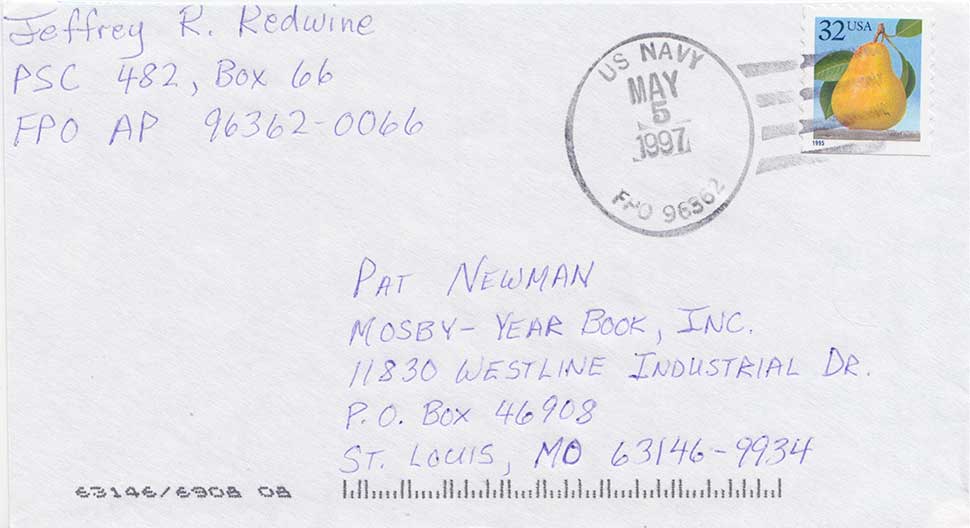 Jeffrey R. Redwine
PSC 482, Box 66
FPO AP 96362-0066
US NAVY
MAY
5
1997
FPO 96362
32 USA
1995
PAT NEWMAN
MOSBY- YEAR BOOK, INC.
11830 WESTLINE INDUSTRIAL DR.
P.O. BOX 46908
ST. LOUIS, MO 63146-9934
63146/6908 08